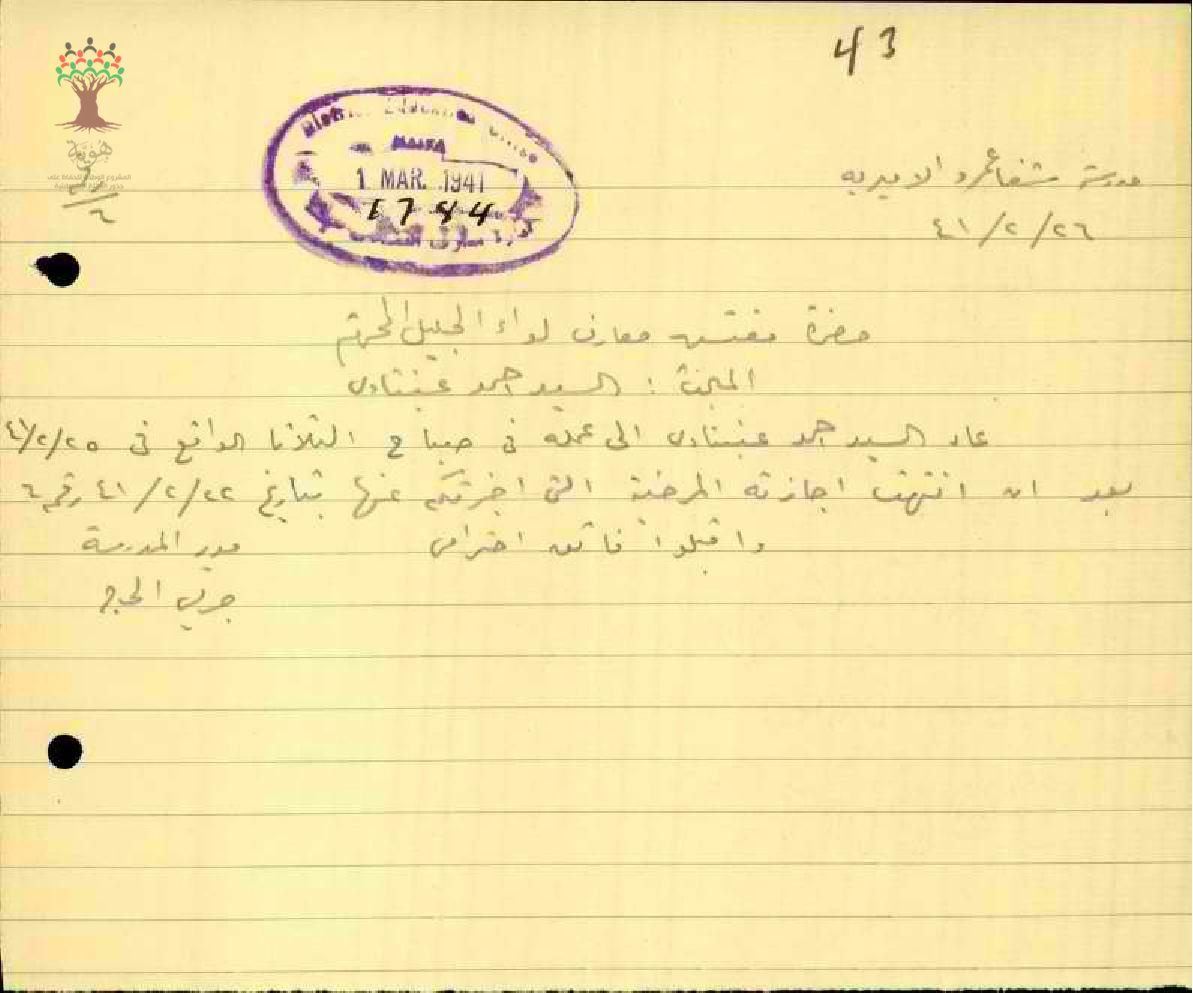 43
هوية
District Education Office
HAIFA
1 MAR. 1941
1744
رقم
٦
مدرسة شفاعمرو الاميريه
٤١/٢/٢٦
حضرة مفتش معارف لواء الجليل المحترم
المبحث : السيد احمد عبنتاوى
عاد السيد احمد عبنتاوى الى عمله فى صباح الثلاثا الواقع فى ٤١/٢/٢٥
بعد ان انتهت اجازته المرضية التى اخبرتكم عنها بتاريخ ٤١/٢/٢٢ رقم ٦
واقبلوا فائق احترامى
مدير المدرسة
الحاج